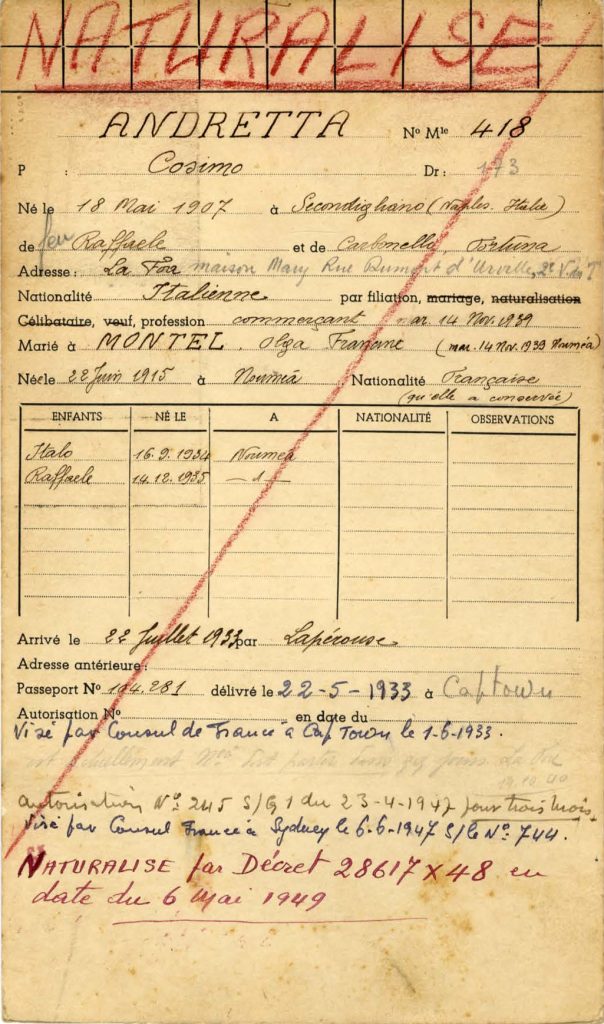 NATURALISE
ANDRETTA No Mle 418
P : Cosimo Dr : 173
Né le 18 Mai 1907 à Secondigliano (Naples. Italie)
de feu Raffaele et de Carbonella, Fortuna
Adresse : La Foa maison Mary Rue Dumont d'Urville, 2e V du T
Nationalité Italienne par filiation, mariage, naturalisation
Célibataire, veuf, profession commerçant mar. 14 Nov. 1939
Marié à MONTEL, Olga (mar. 14 Nov. 1939 Nouméa)
Née le 22 Juin 1915 à Nouméa Nationalité Française
(qu'elle a conservée)
ENFANTS NÉ LE A NATIONALITÉ OBSERVATIONS
Italo 16.9.1934 Nouméa
Raffaele 14.12.1935 —1—
Arrivé le 22 Juillet 1933 par Lapérouse
Adresse antérieure :
Passeport No 104.281 délivré le 22-5-1933 à Captown
Autorisation No en date du
Visé par Consul de France à Cap Town le 1-6-1933.
est actuellement La Foa
autorisation No 245 S/G1 du 23-4-1947 pour trois mois.
Visé par Consul France à Sydney le 6-6-1947 S/le No 744.
NATURALISE par Décret 28617 x 48 en
date du 6 Mai 1949